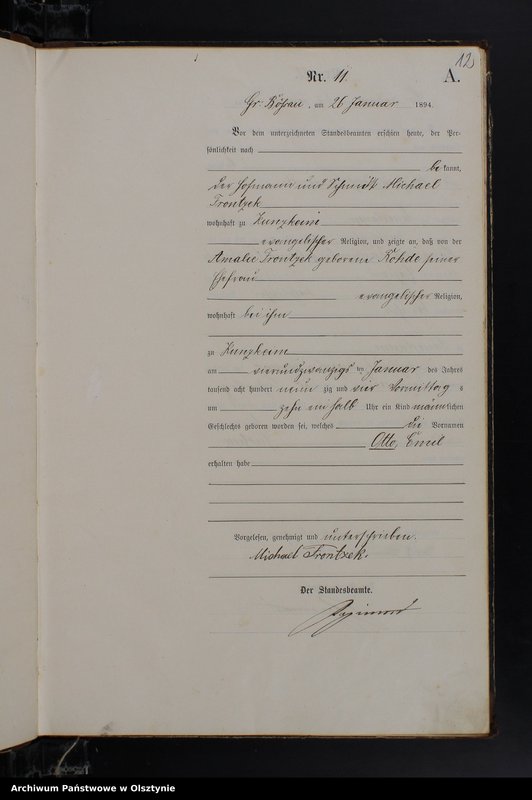 12
Nr. 11 A.
Gr. Rößau, am 26 Januar 1894.
Vor dem unterzeichneten Standesbeamten erschien heute, der Per-
sönlichkeit nach
bekannt,
der Hofmann und Schmidt Michael
Trontzek
wohnhaft zu
evangelischer Religion, und zeigte an, daß von der
Amalie Trontzek geborene Rohde seiner
Ehefrau
evangelischer Religion,
wohnhaft bei ihm
zu
am vierundzwanzigsten Januar des Jahres
tausend acht hundert neunzig und vier Vormittags
um zehn ein halb Uhr ein Kind männlichen
Geschlechts geboren worden sei, welches die Vornamen
Otto, Emil
erhalten habe
Vorgelesen, genehmigt und unterschrieben.
Michael Trontzek.
Der Standesbeamte.
Archiwum Państwowe w Olsztynie